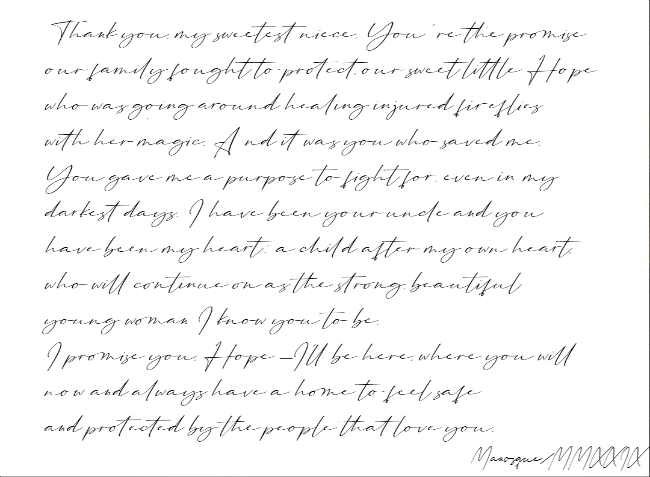 Thank you, my sweetest niece. You're the promise
our family fought to protect, our sweet little Hope
who was going around healing injured fireflies
with her magic. And it was you who saved me.
You gave me a purpose to fight for, even in my
darkest days. I have been your uncle and you
have been my heart; a child after my own heart,
who will continue on as the strong, beautiful
young woman I know you to be.
I promise you, Hope –I'll be here, where you will
now and always have a home to feel safe
and protected by the people that love you.
Manosque/MMXXIX